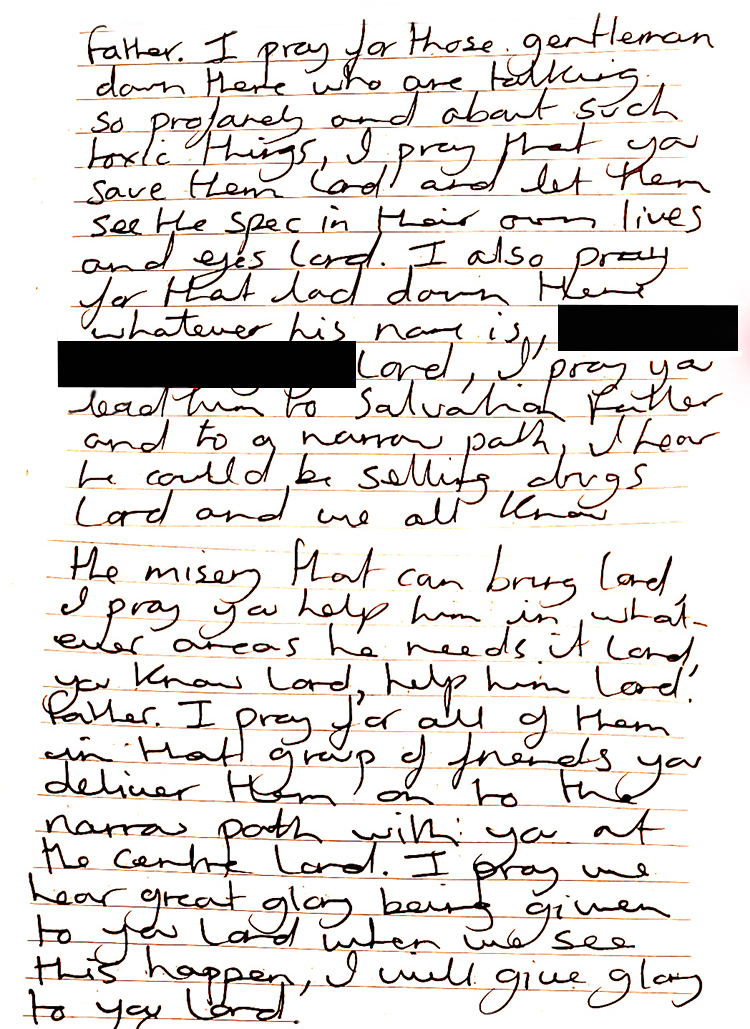 Father. I pray for those gentleman
down there who are talking
so profanely and about such
toxic things, I pray that you
save them Lord and let them
see the spec in their own lives
and eyes Lord. I also pray
for that lad down there
whatever his name is,
Lord, I pray you
lead him to Salvation Father
and to a narrow path, I hear
he could be selling drugs
Lord and we all know
the misery that can bring Lord,
I pray you help him in what-
ever areas he needs it Lord,
you know Lord, help him Lord.
Father. I pray for all of them
in that group of friends you
deliver them on to the
narrow path with you at
the centre Lord. I pray we
hear great glory being given
to you Lord when we see
this happen, I will give glory
to you Lord.